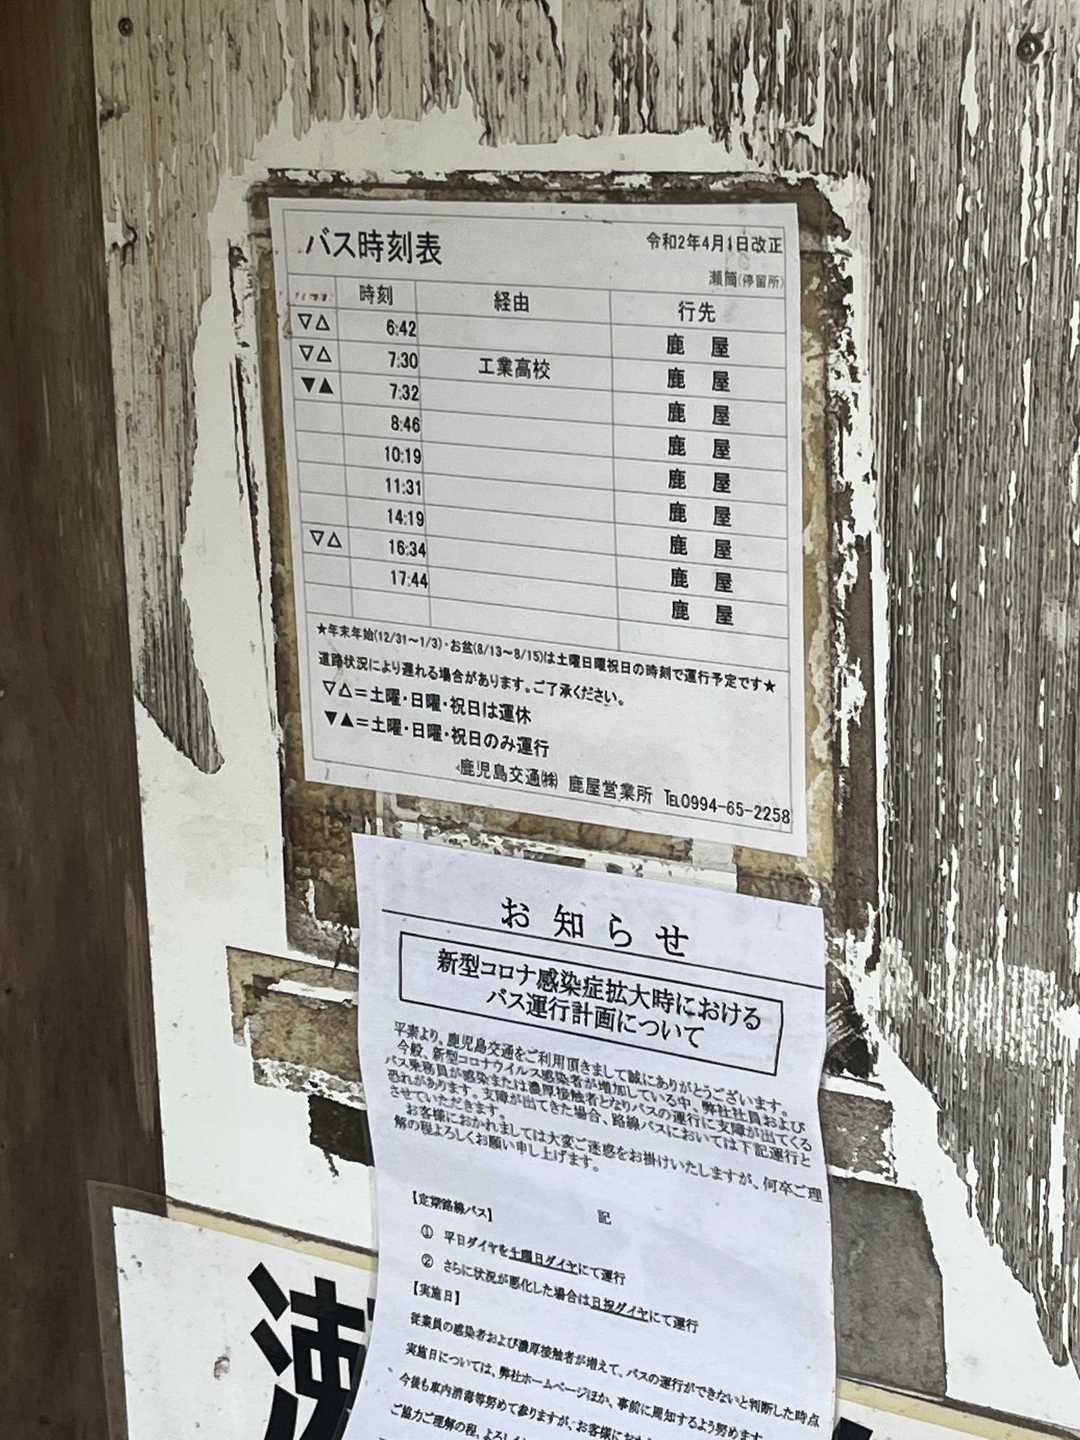 バス時刻表
令和2年4月1日改正
瀬筒(停留所)
時刻 経由 行先
▽△ 6:42 鹿 屋
▽△ 7:30 工業高校 鹿 屋
▼▲ 7:32 鹿 屋
8:46 鹿 屋
10:19 鹿 屋
11:31 鹿 屋
14:19 鹿 屋
▽△ 16:34 鹿 屋
17:44 鹿 屋
★年末年始(12/31～1/3)・お盆(8/13～8/15)は土曜日曜祝日の時刻で運行予定です★
道路状況により遅れる場合があります。ご了承ください。
▽△＝土曜・日曜・祝日は運休
▼▲＝土曜・日曜・祝日のみ運行
鹿児島交通㈱ 鹿屋営業所 ℡0994-65-2258
お知らせ
新型コロナ感染症拡大時における
バス運行計画について
平素より、鹿児島交通をご利用頂きまして誠にありがとうございます。
今般、新型コロナウイルス感染者が増加している中、弊社社員および
バス乗務員が感染または濃厚接触者となりバスの運行に支障が出てくる
恐れがあります。支障が出てきた場合、路線バスにおいては下記運行と
させていただきます。
お客様におかれましては大変ご迷惑をお掛けいたしますが、何卒ご理
解の程よろしくお願い申し上げます。
記
【定期路線バス】
① 平日ダイヤを土曜日ダイヤにて運行
② さらに状況が悪化した場合は日祝ダイヤにて運行
【実施日】
従業員の感染者および濃厚接触者が増えて、バスの運行ができないと判断した時点
実施日については、弊社ホームページほか、事前に周知するよう努めます
今後も車内消毒等努めて参りますが、お客様にお
ご協力ご理解の程、よろし